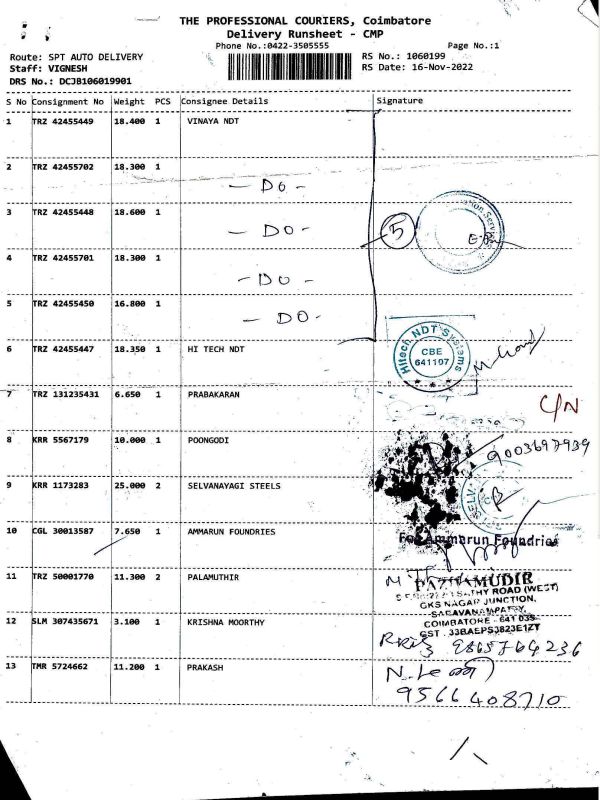 THE PROFESSIONAL COURIERS, Coimbatore
Delivery Runsheet - CMP
Phone No.:0422-3505555
Page No.:1
Route: SPT AUTO DELIVERY
RS No.: 1060199
Staff: VIGNESH
RS Date: 16-Nov-2022
DRS No.: DCJB106019901
S No Consignment No Weight PCS Consignee Details Signature
1 TRZ 42455449 18.400 1 VINAYA NDT
2 TRZ 42455702 18.300 1
- DO -
3 TRZ 42455448 18.600 1
- DO -
5
4 TRZ 42455701 18.300 1
- DO -
5 TRZ 42455450 16.800 1
- DO -
6 TRZ 42455447 18.350 1 HI TECH NDT
Hitech NDT Systems
CBE
641107
7 TRZ 131235431 6.650 1 PRABAKARAN
C/N
8 KRR 5567179 10.000 1 POONGODI
9003697939
9 KRR 1173283 25.000 2 SELVANAYAGI STEELS
SELV
10 CGL 30013587 7.650 1 AMMARUN FOUNDRIES
For Ammarun Foundries
11 TRZ 50001770 11.300 2 PALAMUTHIR
SATHY ROAD (WEST)
GKS NAGAR JUNCTION,
SARAVANAMPATTY,
COIMBATORE - 641 035
GST : 33BAEPS3823E1ZT
12 SLM 307435671 3.100 1 KRISHNA MOORTHY
9865764236
13 TMR 5724662 11.200 1 PRAKASH
9566408710